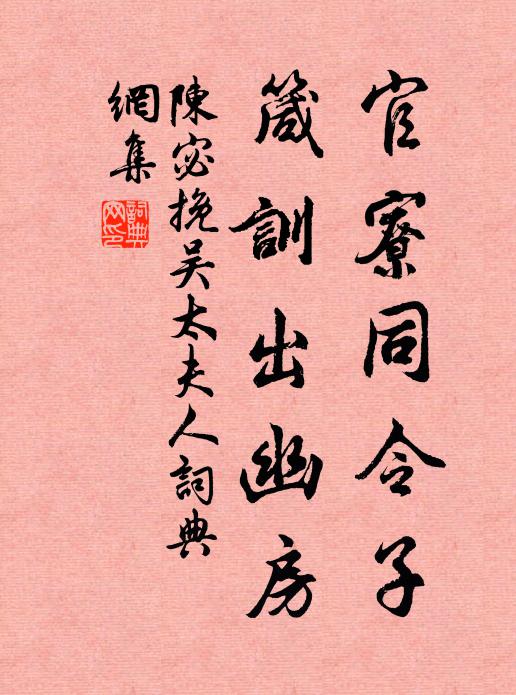 官寮同令子
箴訓出幽房
陳宓挽吴太夫人詞典
網集
詞典
网印